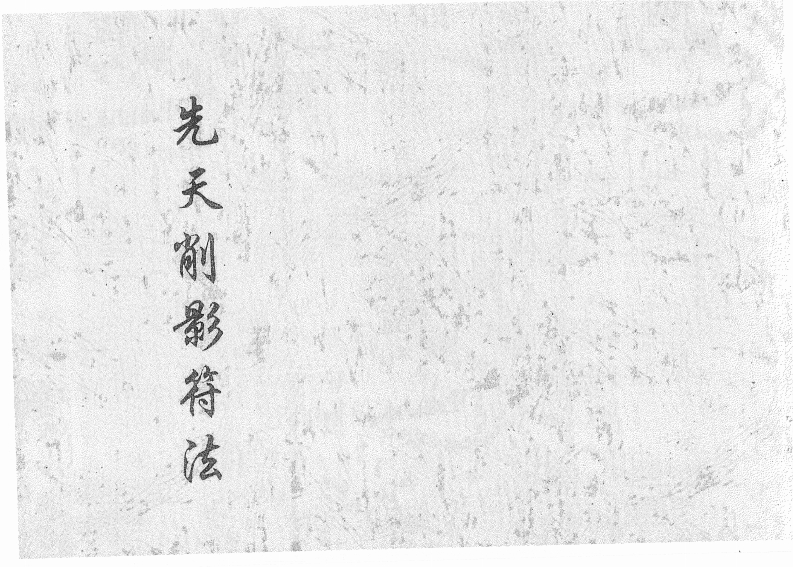 先天削影符法